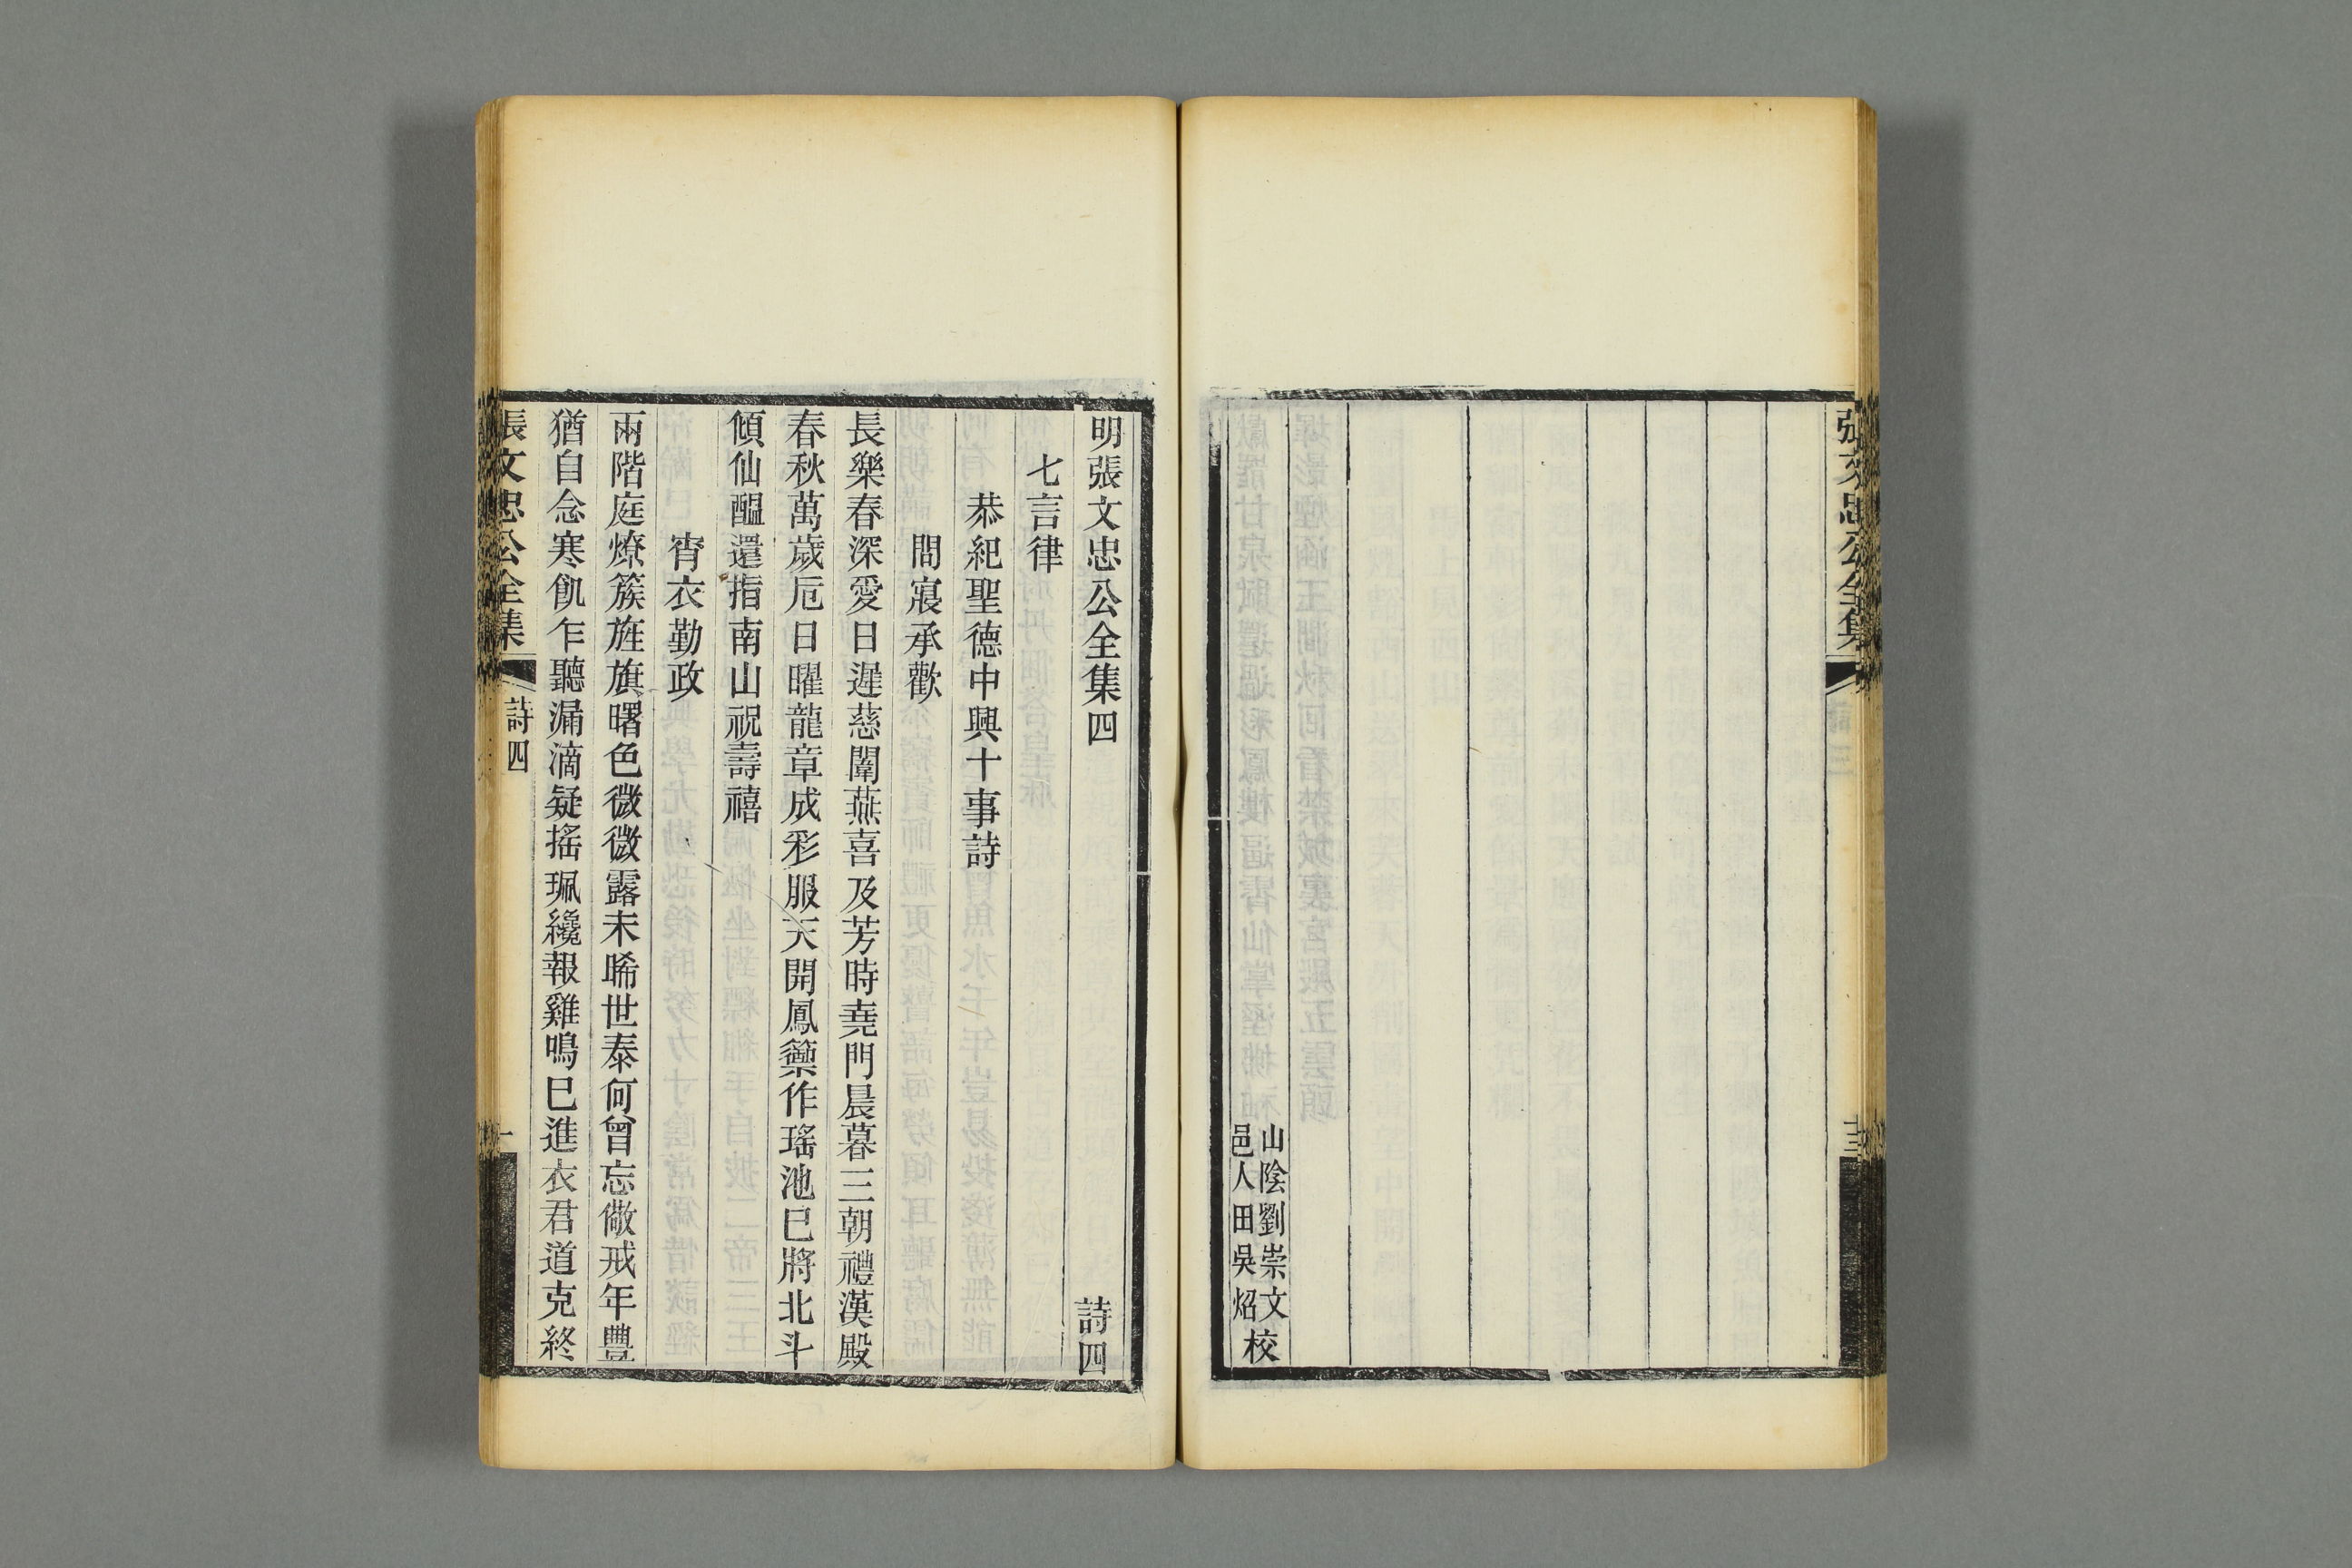 張文忠公全集
詩三
十三
山陰劉崇文
邑人田吳炤
校
明張文忠公全集四
詩四
七言律
恭紀聖德中興十事詩
問寢承歡
長樂春深愛日遲慈闈燕喜及芳時堯門晨暮三朝禮漢殿
春秋萬歲卮日曜龍章成彩服天開鳳籞作瑤池巳將北斗
傾仙醞還指南山祝壽禧
宵衣勤政
兩階庭燎簇旌旗曙色微微露未晞世泰何曾忘儆戒年豐
猶自念寒飢乍聽漏滴疑搖珮纔報雞鳴巳進衣君道克終
張文忠公全集
詩四
一